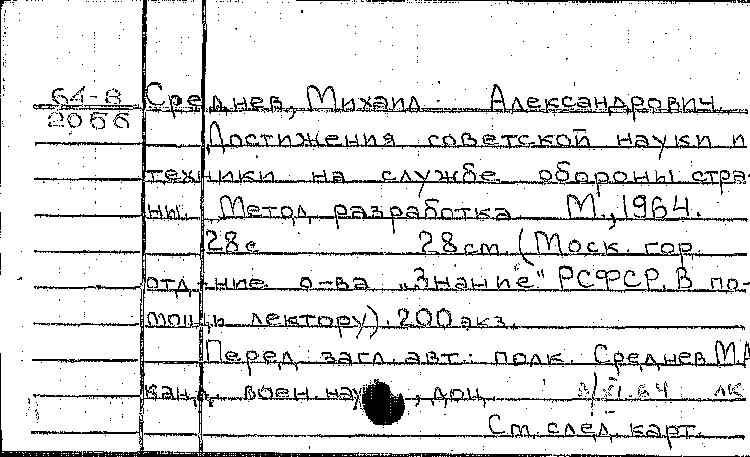 64-8 Среднев, Михаил Александрович.
2066
Достижения советской науки и
техники на службе обороны стра-
ны. Метод. разработка М., 1964.
28с 28 см. (Моск. гор.
отд-ние о-ва „Знание" РСФСР. В по-
мощь лектору). 200 экз.
Перед загл. авт.: полк. Среднев М.А.
канд. воен. наук, доц.
См. след. карт.